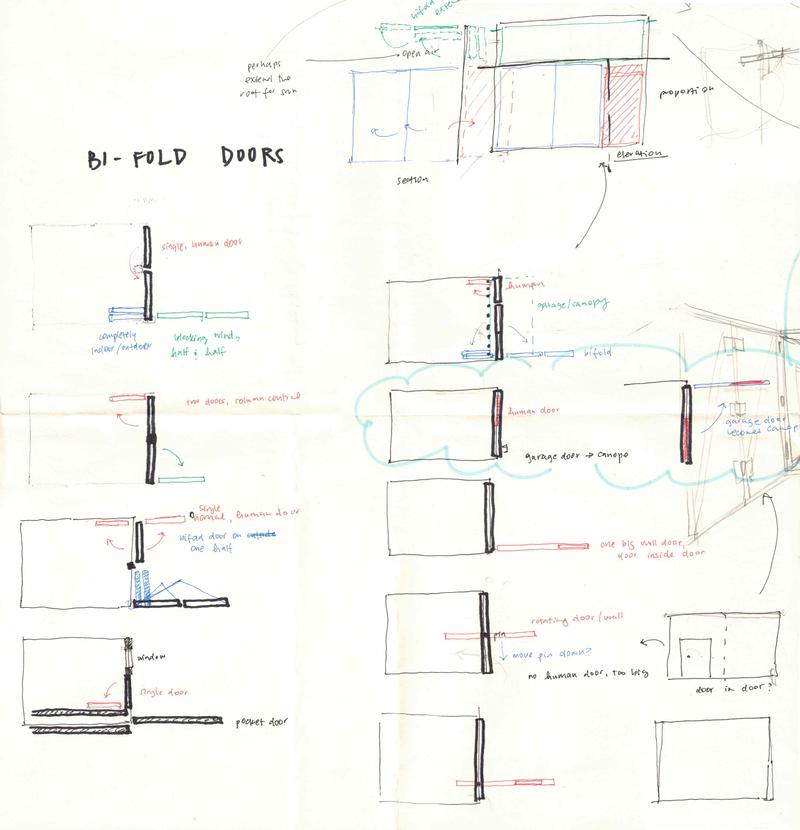 bifold
open air
perhaps
extend the
roof for sun
proportion
elevation
section
BI-FOLD DOORS
single, human door
completely
indoor/outdoor
blocking wind,
half & half
human
garage/canopy
bifold
two doors, column central
human door
garage door → canopy
garage door
becomes canopy
single
normal, human door
bifold door on outside
one half
one big wall door,
door inside door
rotating door/wall
pin
move pin down?
no human door, too big
door in door?
window
single door
pocket door